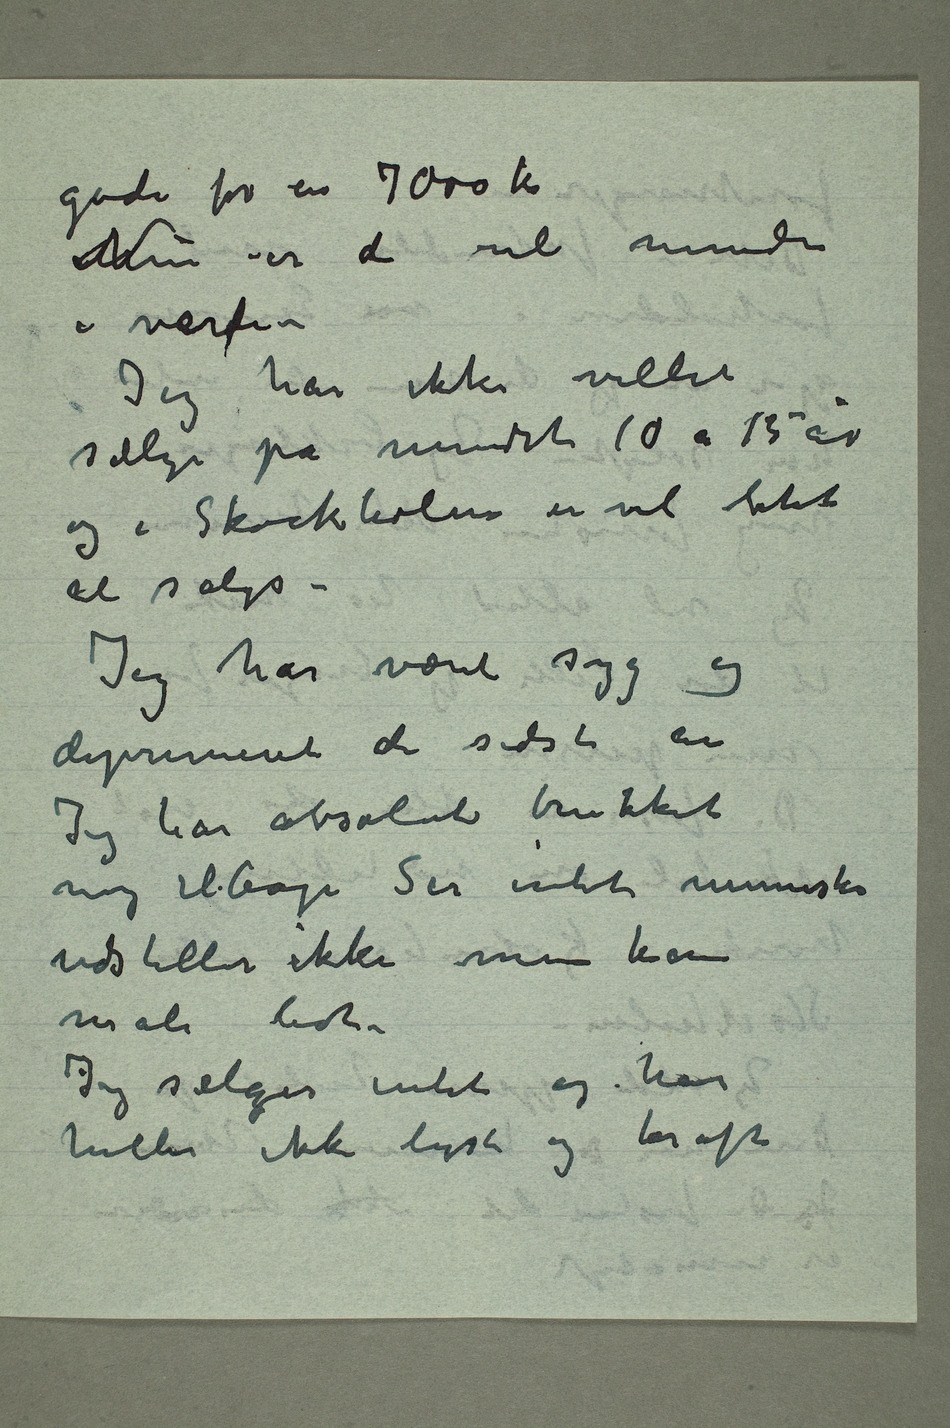 gode for en 7000 k
Nu er de vel mindre
i værdi –
Jeg har ikke villet
sælge på mindst 10 a 15 år
og i Skockholm er vel intet
at salgs –
Jeg har været syg og
deprimeret de sidste år
Jeg har absolut trukket
mig tilbage Ser intet menneske
udstiller ikke men kan
male lidt –
Jeg sælger intet og har
heller ikke lyst og kraft